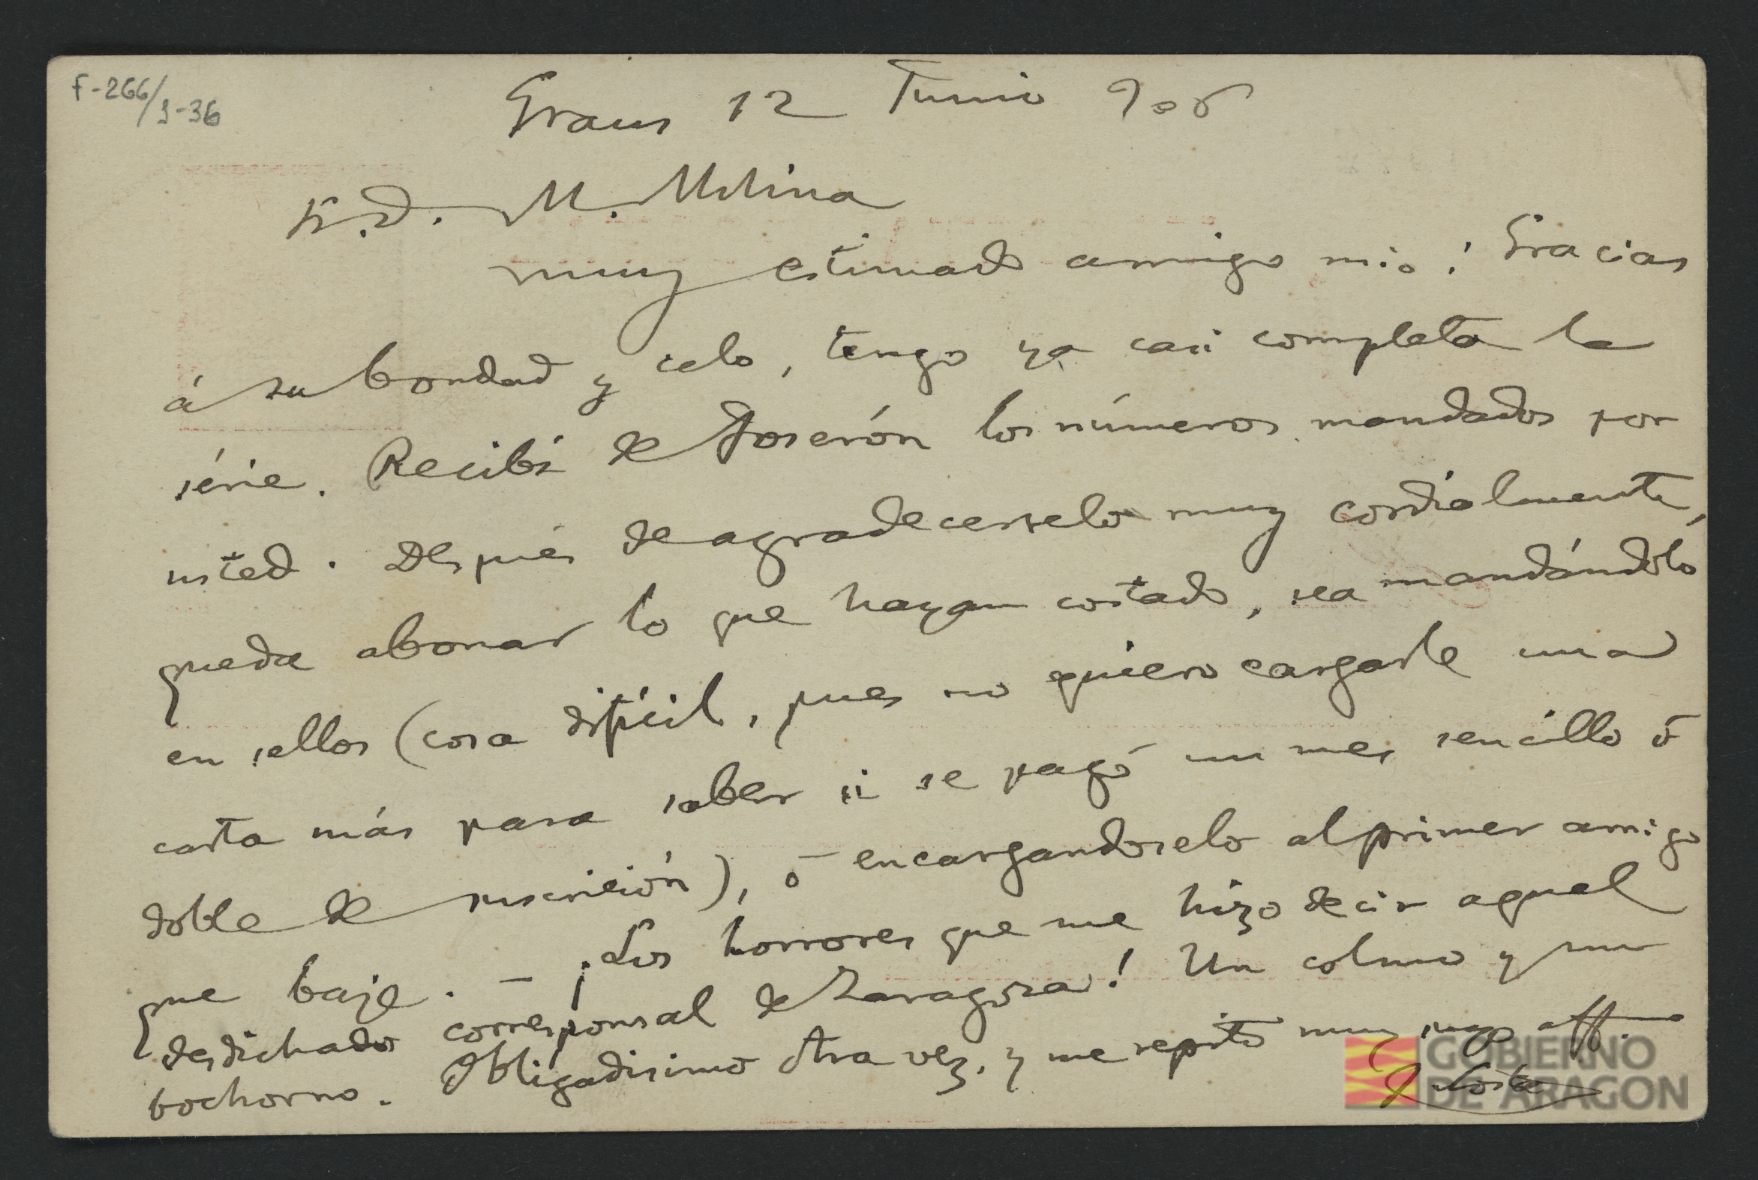 F-266/1-36
Graus 12 Junio 906
Sr. D. M. Molina
muy estimado amigo mio: Gracias
á su bondad y celo, tengo ya casi completa la
série. Recibí de Joserón los números mandados por
usted. Despues de agradecerselo muy cordialmente,
queda abonar lo que hayan costado, sea mandándolo
en sellos (cosa difícil, pues no quiero cargarle una
carta más para saber si se pagó un mes sencillo ó
doble de suscrición), ó encargandoselo al primer amigo
que baje. — ¡Los horrores que me hizo decir aquel
desdichado corresponsal de Zaragoza! Un colmo y un
bochorno. Obligadisimo otra vez, y me repito muy suyo affmo.
J Costa
GOBIERNO
DE ARAGON